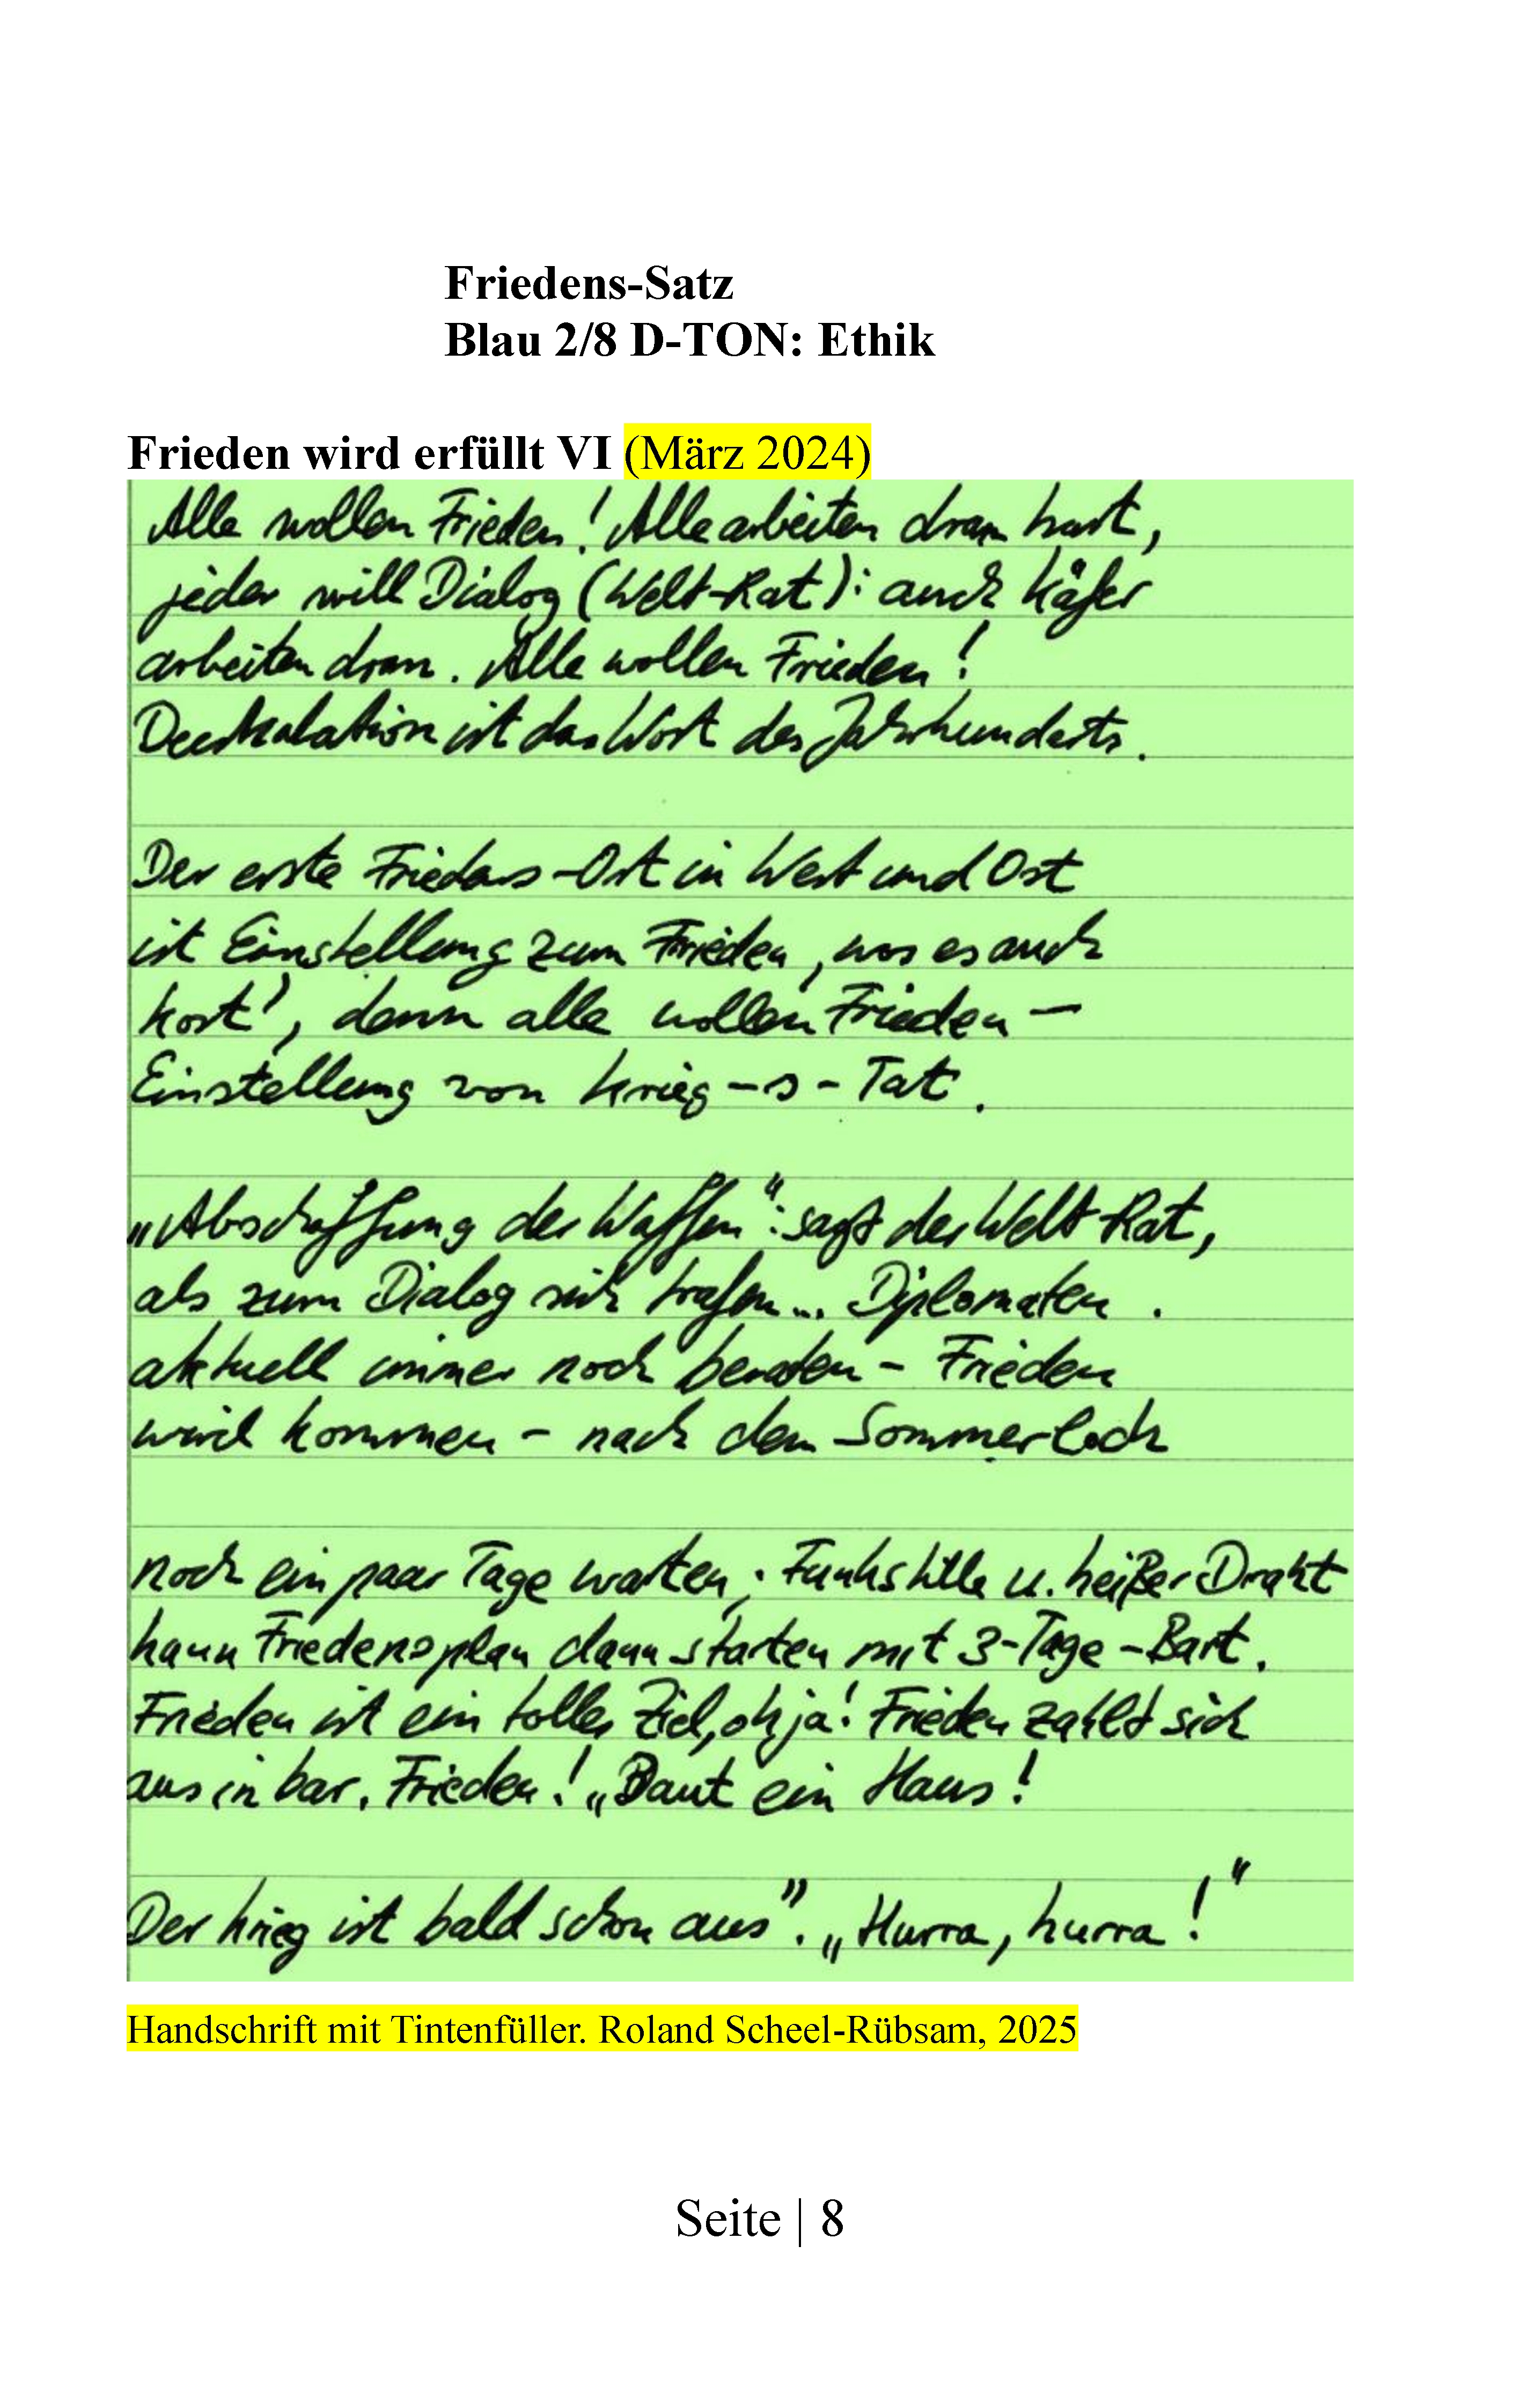 Friedens-Satz
Blau 2/8 D-TON: Ethik
Frieden wird erfüllt VI (März 2024)
Alle wollen Frieden! Alle arbeiten dran hart,
jeder will Dialog (Welt-Rat): auch Käfer
arbeiten dran. Alle wollen Frieden!
Deeskalation ist das Wort des Jahrhunderts.
Der erste Friedens-Ort in West und Ost
ist Einstellung zum Frieden, was es auch
kost', denn alle wollen Frieden –
Einstellung von Krieg-s-Tat.
„Abschaffung der Waffen“: sagt der Welt-Rat,
als zum Dialog sich trafen... Diplomaten.
aktuell immer noch beraten – Frieden
wird kommen – nach dem Sommerloch
noch ein paar Tage warten; Funkstille u. heißer Draht
kann Friedensplan dann starten mit 3-Tage-Bart.
Frieden ist ein tolles Ziel, oh ja! Frieden zahlt sich
aus in bar. Frieden! „Baut ein Haus!
Der Krieg ist bald schon aus”. „Hurra, hurra!“
Handschrift mit Tintenfüller. Roland Scheel-Rübsam, 2025
Seite | 8